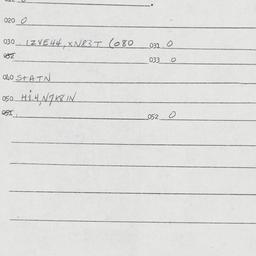 020 0
030 1ZVE44, XNR3T (080 031 0
033 0
040 STATN
050 Hi4, N7K8IN
051 052 0